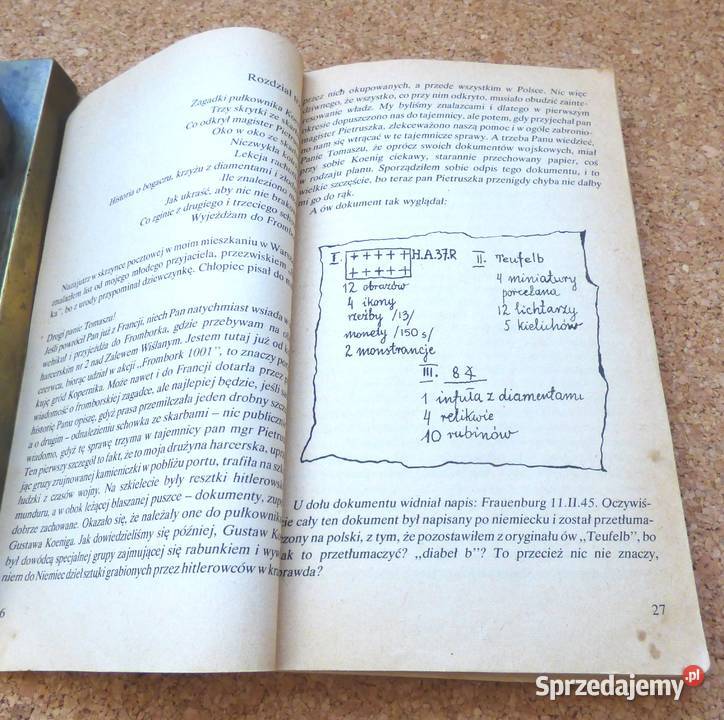 Rozdział
Zagadki pułkownika
Trzy skrytki ze
Co odkrył magister
Oko w oko ze
Niezwykła
Lekcja
Ile znaleziono
Historia o bogaczu, krzyżu z diamentami i
Jak ukraść, aby nic nie
Co zginie z drugiego i trzeciego
Wyjeżdżam do
Nazajutrz w skrzynce pocztowej w moim mieszkaniu w
znalazłem list od mojego młodego przyjaciela, przezwiskiem
bo z urody przypominał dziewczynkę. Chłopiec pisał do
Drogi panie Tomaszu!
Jeśli powrócił Pan już z Francji, niech Pan natychmiast wsiada
wehikuł i przyjeżdża do Fromborka, gdzie przebywam na
harcerskim nr 2 nad Zalewem Wiślanym. Jestem tutaj już od
czerwca, biorąc udział w akcji „Frombork 1001”, to znaczy
gród Kopernika. Może nawet i do Francji dotarła przez
wiadomość o fromborskiej zagadce, ale najlepiej będzie, jeśli
historię Panu opiszę, gdyż prasa przemilczała jeden drobny
a o drugim – odnalezieniu schowka ze skarbami – nic
wiadomo, gdyż tę sprawę trzyma w tajemnicy pan mgr
Ten pierwszy szczegół to fakt, że to moja drużyna harcerska,
jąc gruzy zrujnowanej kamieniczki w pobliżu portu, trafiła na
ludzki z czasów wojny. Na szkielecie były resztki
munduru, a w obok leżącej blaszanej puszce – dokumenty,
dobrze zachowane. Okazało się, że należały one do
Gustawa Koeniga. Jak dowiedzieliśmy się później, Gustaw
był dowódcą specjalnej grupy zajmującej się rabunkiem i
niem do Niemiec dzieł sztuki grabionych przez hitlerowców w
6
przez nich okupowanych, a przede wszystkim w Polsce. Nic więc
dziwnego, że wszystko, co przy nim odkryto, musiało obudzić zainte-
resowanie władz. My byliśmy znalazcami i dlatego w pierwszym
okresie dopuszczono nas do tajemnicy, ale potem, gdy przyjechał pan
magister Pietruszka, zlekceważono naszą pomoc i w ogóle zabronio-
no nam się wtrącać w te tajemnicze sprawy. A trzeba Panu wiedzieć,
Panie Tomaszu, że oprócz swoich dokumentów wojskowych, miał
przy sobie Koenig ciekawy, starannie przechowany papier, coś
w rodzaju planu. Sporządziłem sobie odpis tego dokumentu, i to
wielkie szczęście, bo teraz pan Pietruszka przenigdy chyba nie dałby
mi go do rąk.
A ów dokument tak wyglądał:
I. + + + + + H.A.37.R
+ + + + +
12 obrazów
4 ikony
rzeźby /13/
monety /150 s/
2 monstrancje
II. Teufelb
4 miniatury
porcelana
12 lichtarzy
5 kielichów
III. 8
1 infuła z diamentami
4 relikwie
10 rubinów
U dołu dokumentu widniał napis: Frauenburg 11.II.45. Oczywiś-
cie cały ten dokument był napisany po niemiecku i został przetłuma-
czony na polski, z tym, że pozostawiłem z oryginału ów „Teufelb”, bo
jak to przetłumaczyć? „diabeł b”? To przecież nic nie znaczy,
prawda?
27
Sprzedajemy.pl